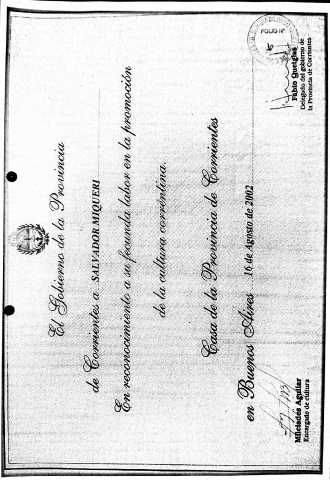 El Gobierno de la Provincia
de Corrientes a SALVADOR MIQUERI
En reconocimiento a su fecunda labor en la promoción
de la cultura correntina.
Casa de la Provincia de Corrientes
en Buenos Aires 16 de Agosto de 2002
Milciades Aguilar
Encargado de cultura
Fabio Quetglas
Delegado del gobierno de
la Provincia de Corrientes
FOLIO Nº